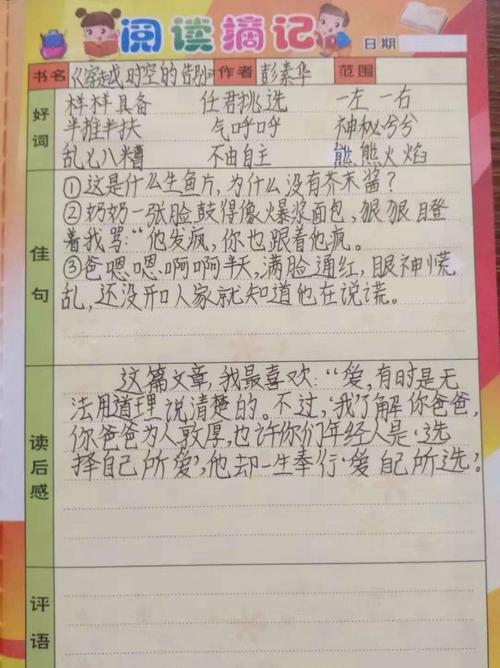 阅读摘记
日期
书名 《穿越时空的告别》 作者 彭素华 范围
好词
样样具备 任君挑选 一左一右
半推半扶 气呼呼 神秘兮兮
乱七八糟 不由自主 熊熊火焰
佳句
①这是什么生鱼片,为什么没有芥末酱?
②奶奶一张脸鼓得像爆浆面包,狠狠瞪
着我骂:“他发疯,你也跟着他疯。
③爸嗯嗯啊啊半天,满脸通红,眼神慌
乱,还没开口人家就知道他在说谎。
读后感
这篇文章,我最喜欢:“爱,有时是无
法用道理说清楚的。不过,‘我了解你爸爸,
你爸爸为人敦厚,也许你们年经人是‘选
择自己所爱’,他却一生奉行‘爱自己所选’。
评语